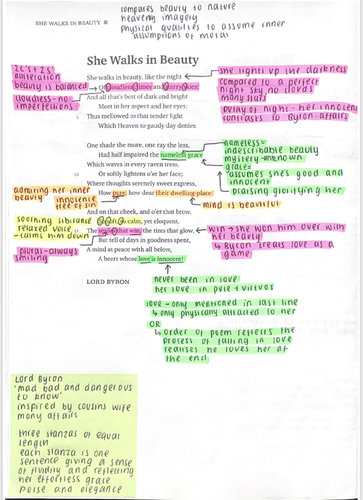 SHE WALKS IN BEAUTY
compares beauty to nature
heavenly imagery
physical qualities to assume inner
assumptions of moral
She Walks in Beauty
She walks in beauty, like the night
Of cloudless climes and starry skies;
And all that's best of dark and bright
Meet in her aspect and her eyes:
Thus mellowed to that tender light
Which Heaven to gaudy day denies.
One shade the more, one ray the less,
Had half impaired the nameless grace
Which waves in every raven tress,
Or softly lightens o'er her face;
Where thoughts serenely sweet express,
How pure, how dear their dwelling-place.
And on that cheek, and o'er that brow,
So soft, so calm, yet eloquent,
The smiles that win, the tints that glow,
But tell of days in goodness spent,
A mind at peace with all below,
A heart whose love is innocent!
LORD BYRON
2C's + 2S's
alliteration
beauty is balanced
cloudless - no
imperfections
she lights up the darkness
compared to a perfect
night sky no clouds
many stars
purity of night - her innocence
contrasts to Byron - affairs
nameless =
indescribable beauty
mystery - unknown
grace =
assumes she's good and
innocent
praising glorifying her
admiring her inner
beauty
innocence
free of sin
mind is beautiful
soothing sibilance
relaxed voice
- calms him down
plural - always
smiling
win → she won him over with
her beauty
↳ Byron treats love as a
game
never been in love
her love is pure + virtuos
love - only mentioned in last line
↳ only physically attracted to her
OR
↳ order of poem reflects the
process of falling in love
realises he loves her at
the end
Lord Byron
'mad bad and dangerous
to know'
inspired by cousins wife
many affairs
three stanzas of equal
length
each stanza is one
sentence giving a sense
of fluidity and reflecting
her effortless grace
poise and elegance